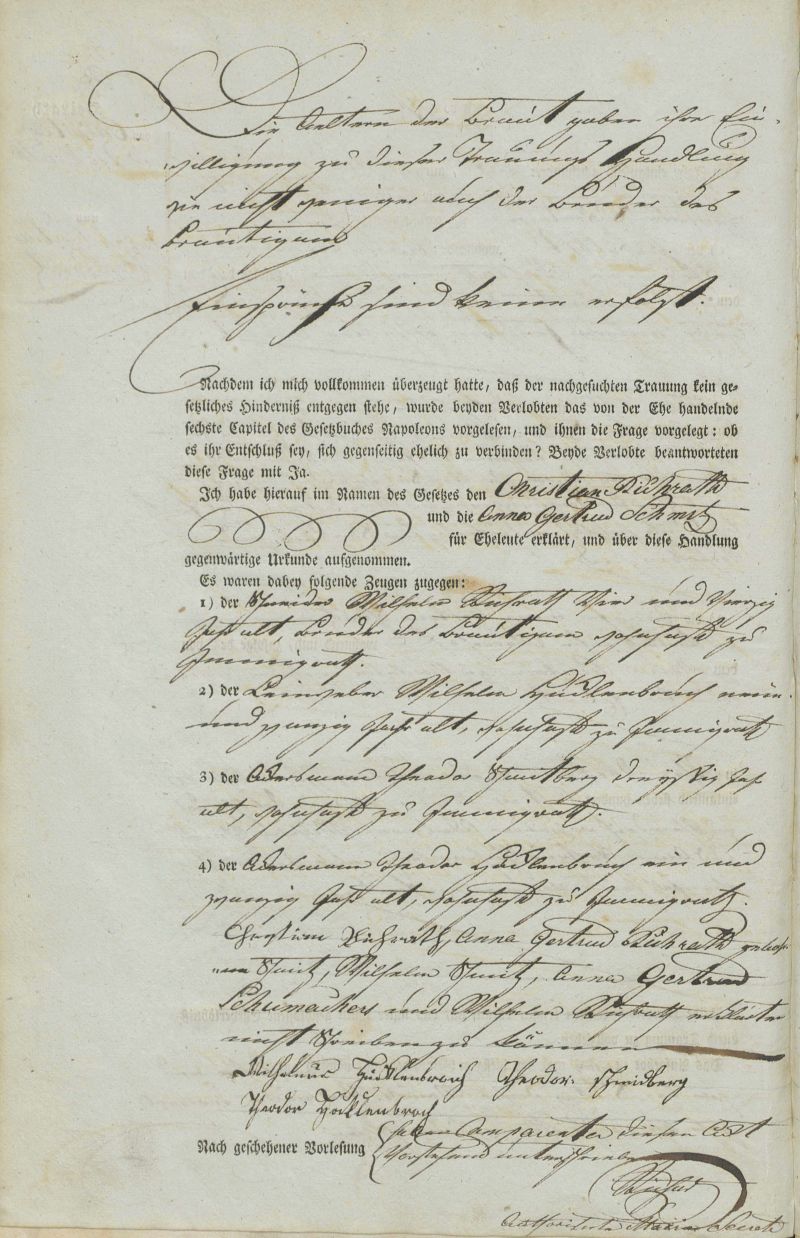 Die Aeltern der Braut gaben ihre Ein-
willigung zu dieser Trauungs Handlung
wie nicht weniger auch der Bruder des
Bräutigams
Einsprüche sind keine erfolgt.
Nachdem ich mich vollkommen überzeugt hatte, daß der nachgesuchten Trauung kein ge-
setzliches Hinderniß entgegen stehe, wurde beyden Verlobten das von der Ehe handelnde
sechste Capitel des Gesetzbuches Napoleons vorgelesen, und ihnen die Frage vorgelegt: ob
es ihr Entschluß sey, sich gegenseitig ehelich zu verbinden? Beyde Verlobte beantworteten
diese Frage mit Ja.
Ich habe hierauf im Namen des Gesetzes den Christian Richrath
und die Anna Gertrud Schmitz
für Eheleute erklärt, und über diese Handlung
gegenwärtige Urkunde aufgenommen.
Es waren dabey folgende Zeugen zugegen:
1) der Schneider Wilhelm Richrath Vier und Vierzig
Jahr alt, Bruder des Bräutigam wohnhaft zu
Immigrath.
2) der Leinweber Wilhelm Hücklenbruch neun-
und zwanzig Jahr alt, wohnhaft zu Immigrath
3) der Ackersmann Theodor Schmitberg dreyssig Jahr
alt, wohnhaft zu Immigrath.
4) der Ackersmann Theodor Hücklenbruch ein und
zwanzig Jahr alt, wohnhaft zu Immigrath.
Christian Richrath, Anna Gertrud Richrath gebohr-
ne Schmitz, Wilhelm Schmitz, Anna Gertrud
Schumachers und Wilhelm Richrath erklärten
nicht Schreiben zu können
Wilhelmus Hücklenbroich Theodor Schmidberg
Theodor Hücklenbroch
Nach geschehener Vorlesung haben Comparenten diesen Act
Vorstehend unterschrieben